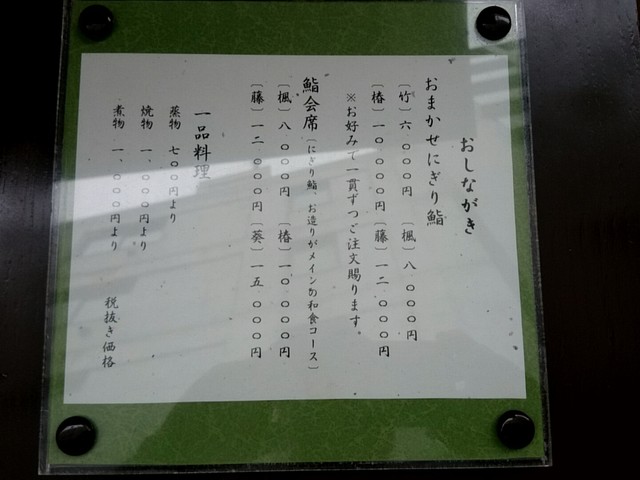 おしながき
おまかせにぎり鮨
〔竹〕六、〇〇〇円 〔楓〕八、〇〇〇円
〔椿〕一〇、〇〇〇円 〔藤〕一二、〇〇〇円
※お好みで一貫ずつご注文賜ります。
鮨会席〔にぎり鮨、お造りがメインの和食コース〕
〔楓〕八、〇〇〇円 〔椿〕一〇、〇〇〇円
〔藤〕一二、〇〇〇円 〔葵〕一五、〇〇〇円
一品料理
蒸物 七〇〇円より
焼物 一、〇〇〇円より
煮物 一、〇〇〇円より
税抜き価格